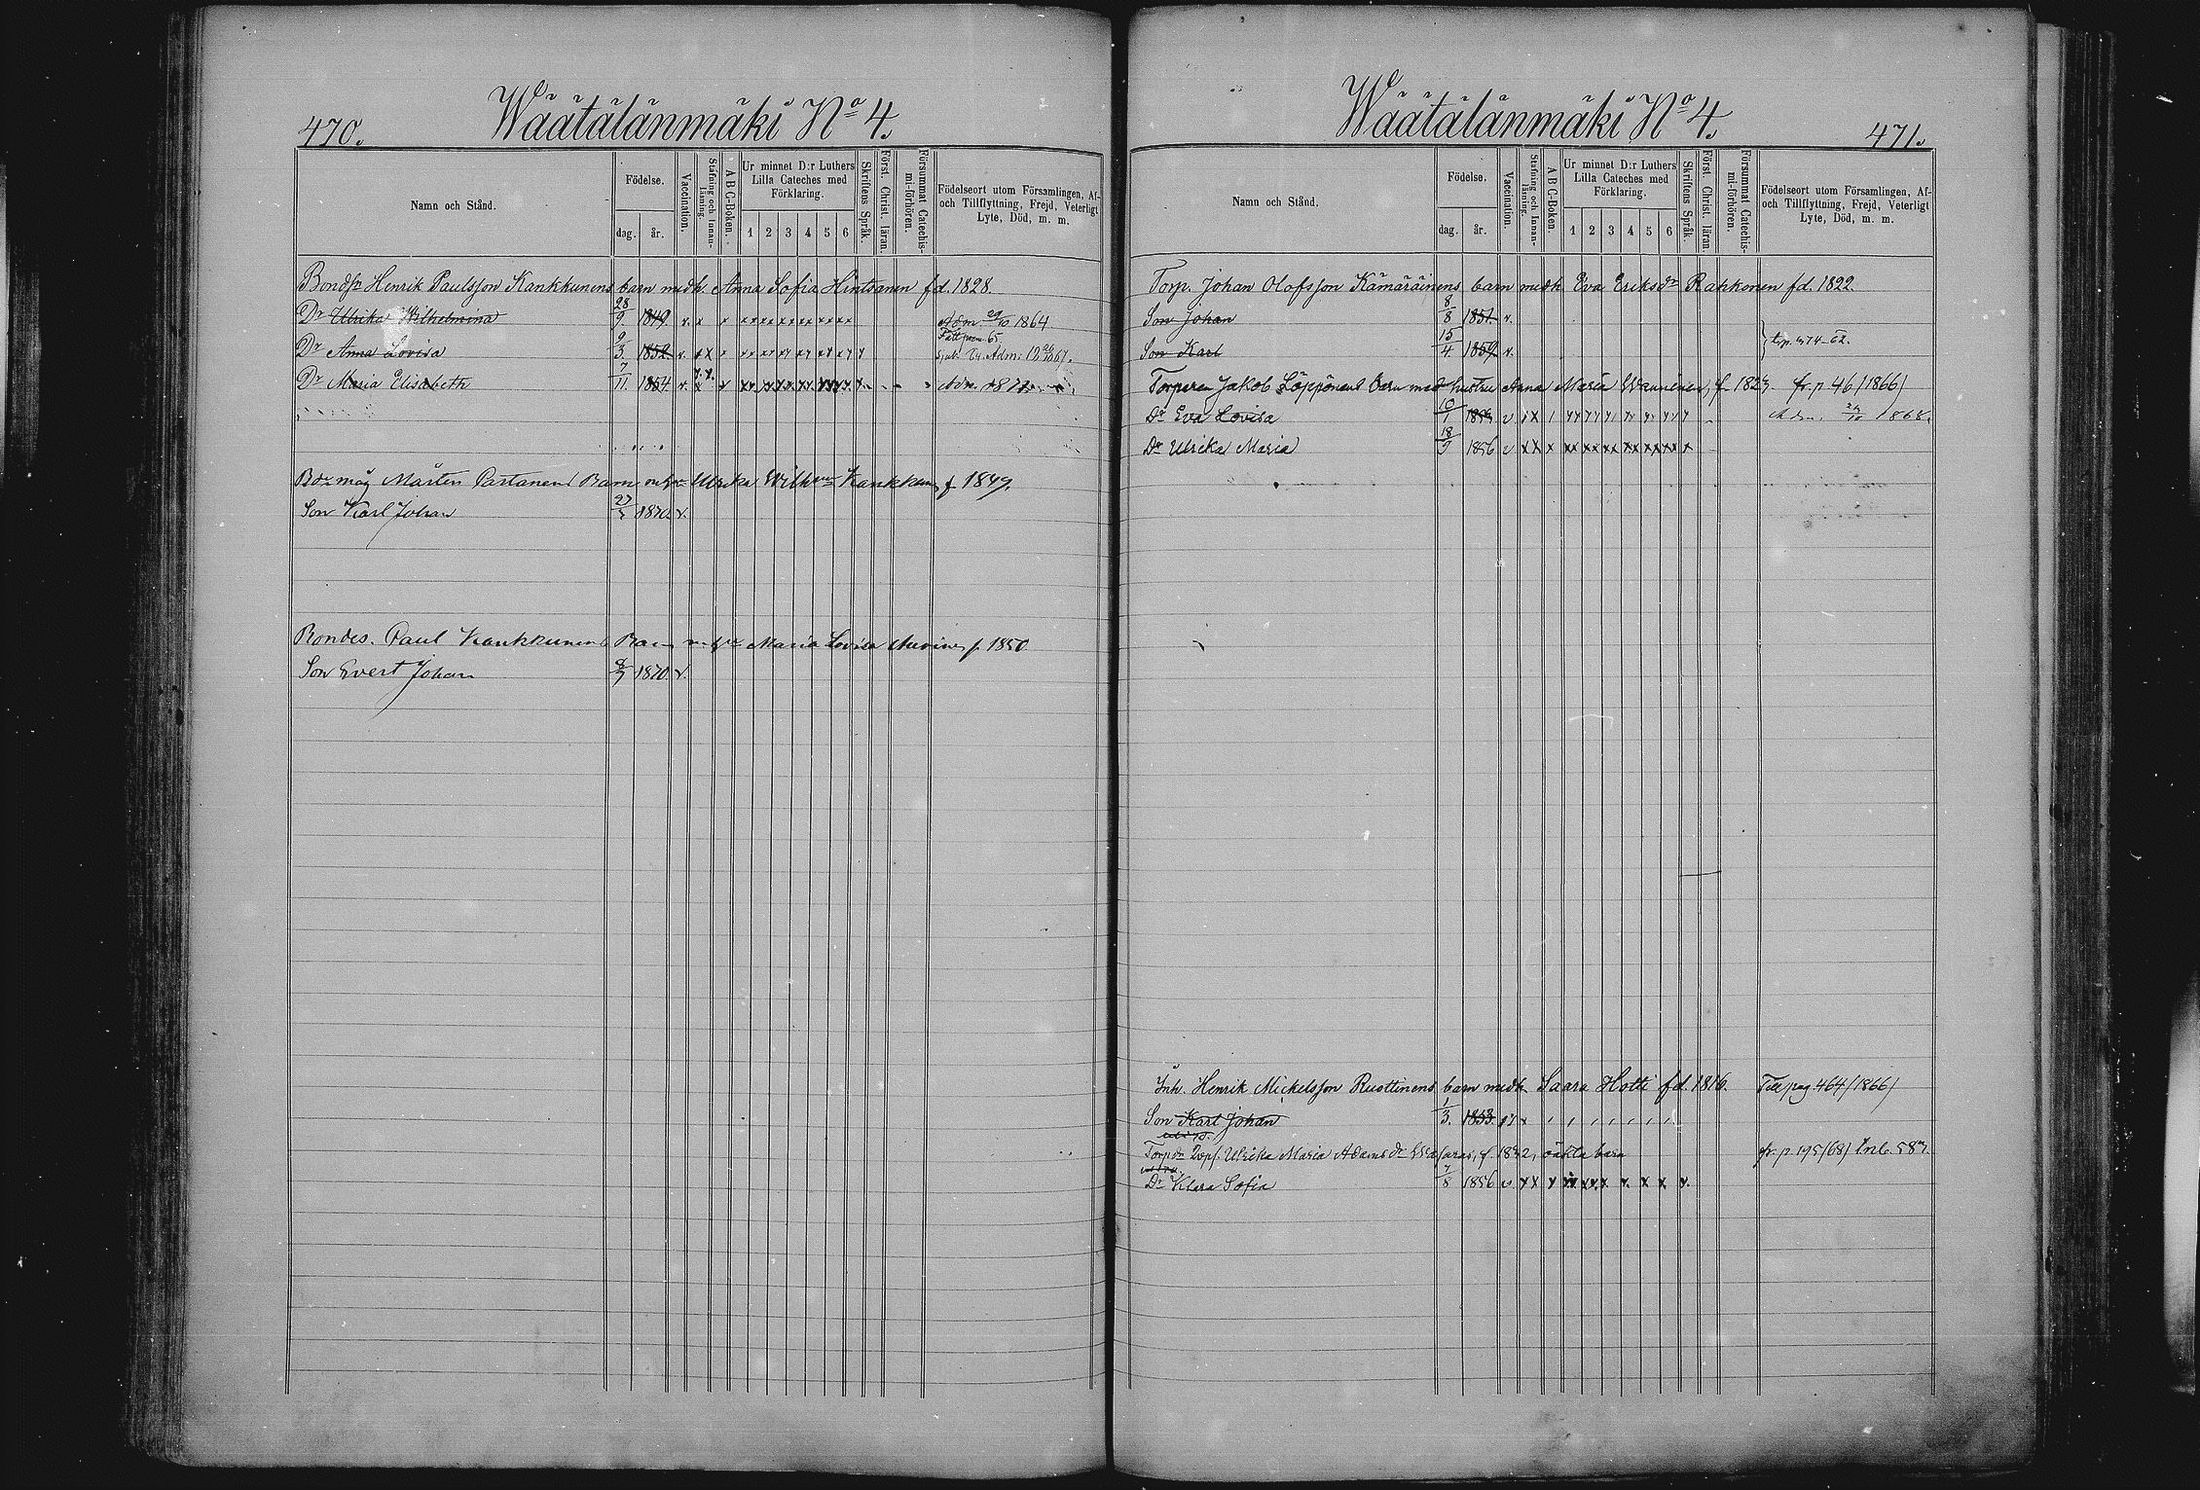 470.
Wäätälänmäki No 4.
Namn och Stånd.
Födelse.
dag.
år.
Vaccination.
Stafning och Innanläsning.
A B C-Boken.
Ur minnet D:r Luthers Lilla Cateches med Förklaring.
1 2 3 4 5 6
Skriftens Språk.
Först. Christ. läran.
Försummat Catechismi-förhören.
Födelseort utom Församlingen, Af- och Tillflyttning, Frejd, Veterligt Lyte, Död, m. m.
Bondsn Henrik Paulsson Kankkunens barn medh. Anna Sofia Hintsanen fd. 1828.
Dr Ulrika Wilhelmina 28/9 1849. v. Adm. 29/10 1864
Dr Anna Lovisa 9/3 1852. v.
Dr Maria Elisabeth 7/11. 1854 v.
Mårten Partanens Barn Ulrika Kankkunen f 1849.
Son Karl Johan 1870 v.
Bondes. Paul Kankkunens Barn Maria Lovisa f. 1850
Son Evert Johan 8/7 1870 v.
471.
Wäätälänmäki No 4.
Namn och Stånd.
Födelse.
dag.
år.
Vaccination.
Stafning och Innanläsning.
A B C-Boken.
Ur minnet D:r Luthers Lilla Cateches med Förklaring.
1 2 3 4 5 6
Skriftens Språk.
Först. Christ. läran.
Försummat Catechismi-förhören.
Födelseort utom Församlingen, Af- och Tillflyttning, Frejd, Veterligt Lyte, Död, m. m.
Torp. Johan Olofsson Kämäräinens barn medh. Eva Eriksdr Rahkonen fd. 1822.
Son Johan 8/8 1851. v.
Son Karl 15/4 1859. v.
Torparen Jakob Löppönens barn med hustru Anna Maria f 1827 fr. p 46/1866/
Dr Eva Lovisa 10/1 v 1868.
Dr Ulrika Maria 18/9 1856 v
Inh. Henrik Mickelsson Ruottinens barn medh. Saara Hotti fd. 1816. Till pag 464/1866/
Son Karl Johan 1/3. 1853.
Ulrika Maria Adamsdr oäkta barn fr. p 195/68/
Dr Klara Sofia 7/8 1856 v